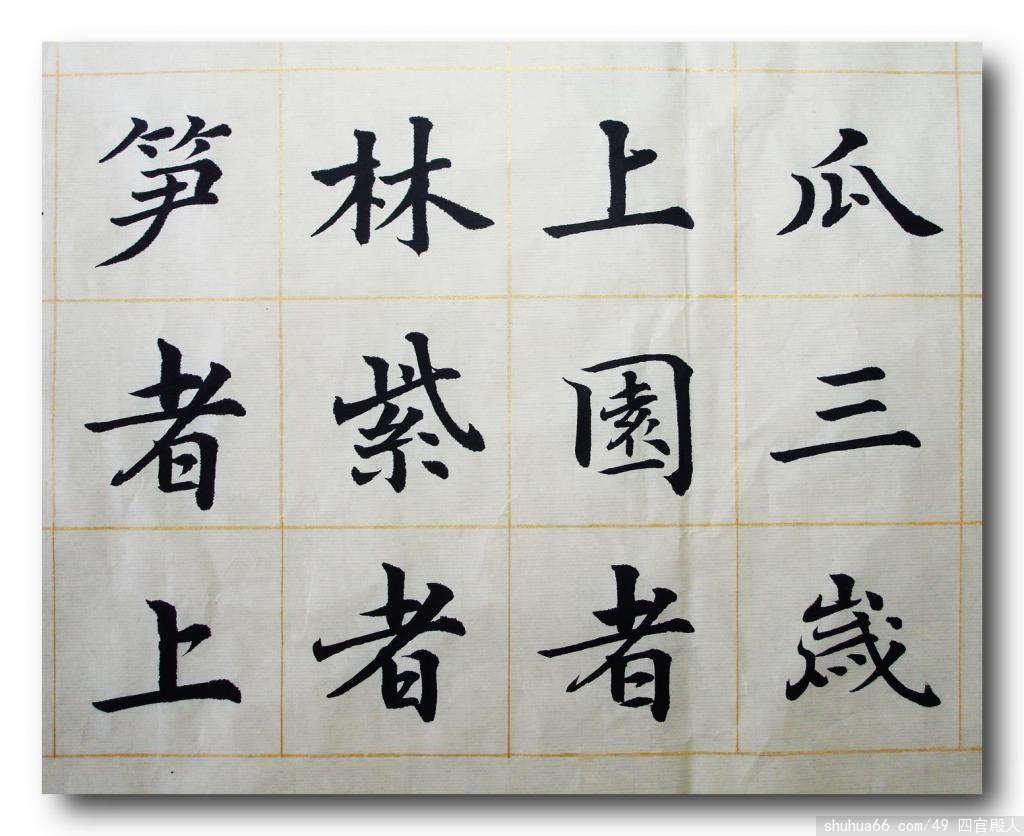 瓜三歲
上園者
林紫者
笋者上
shuhua66.com/49 四官殿人